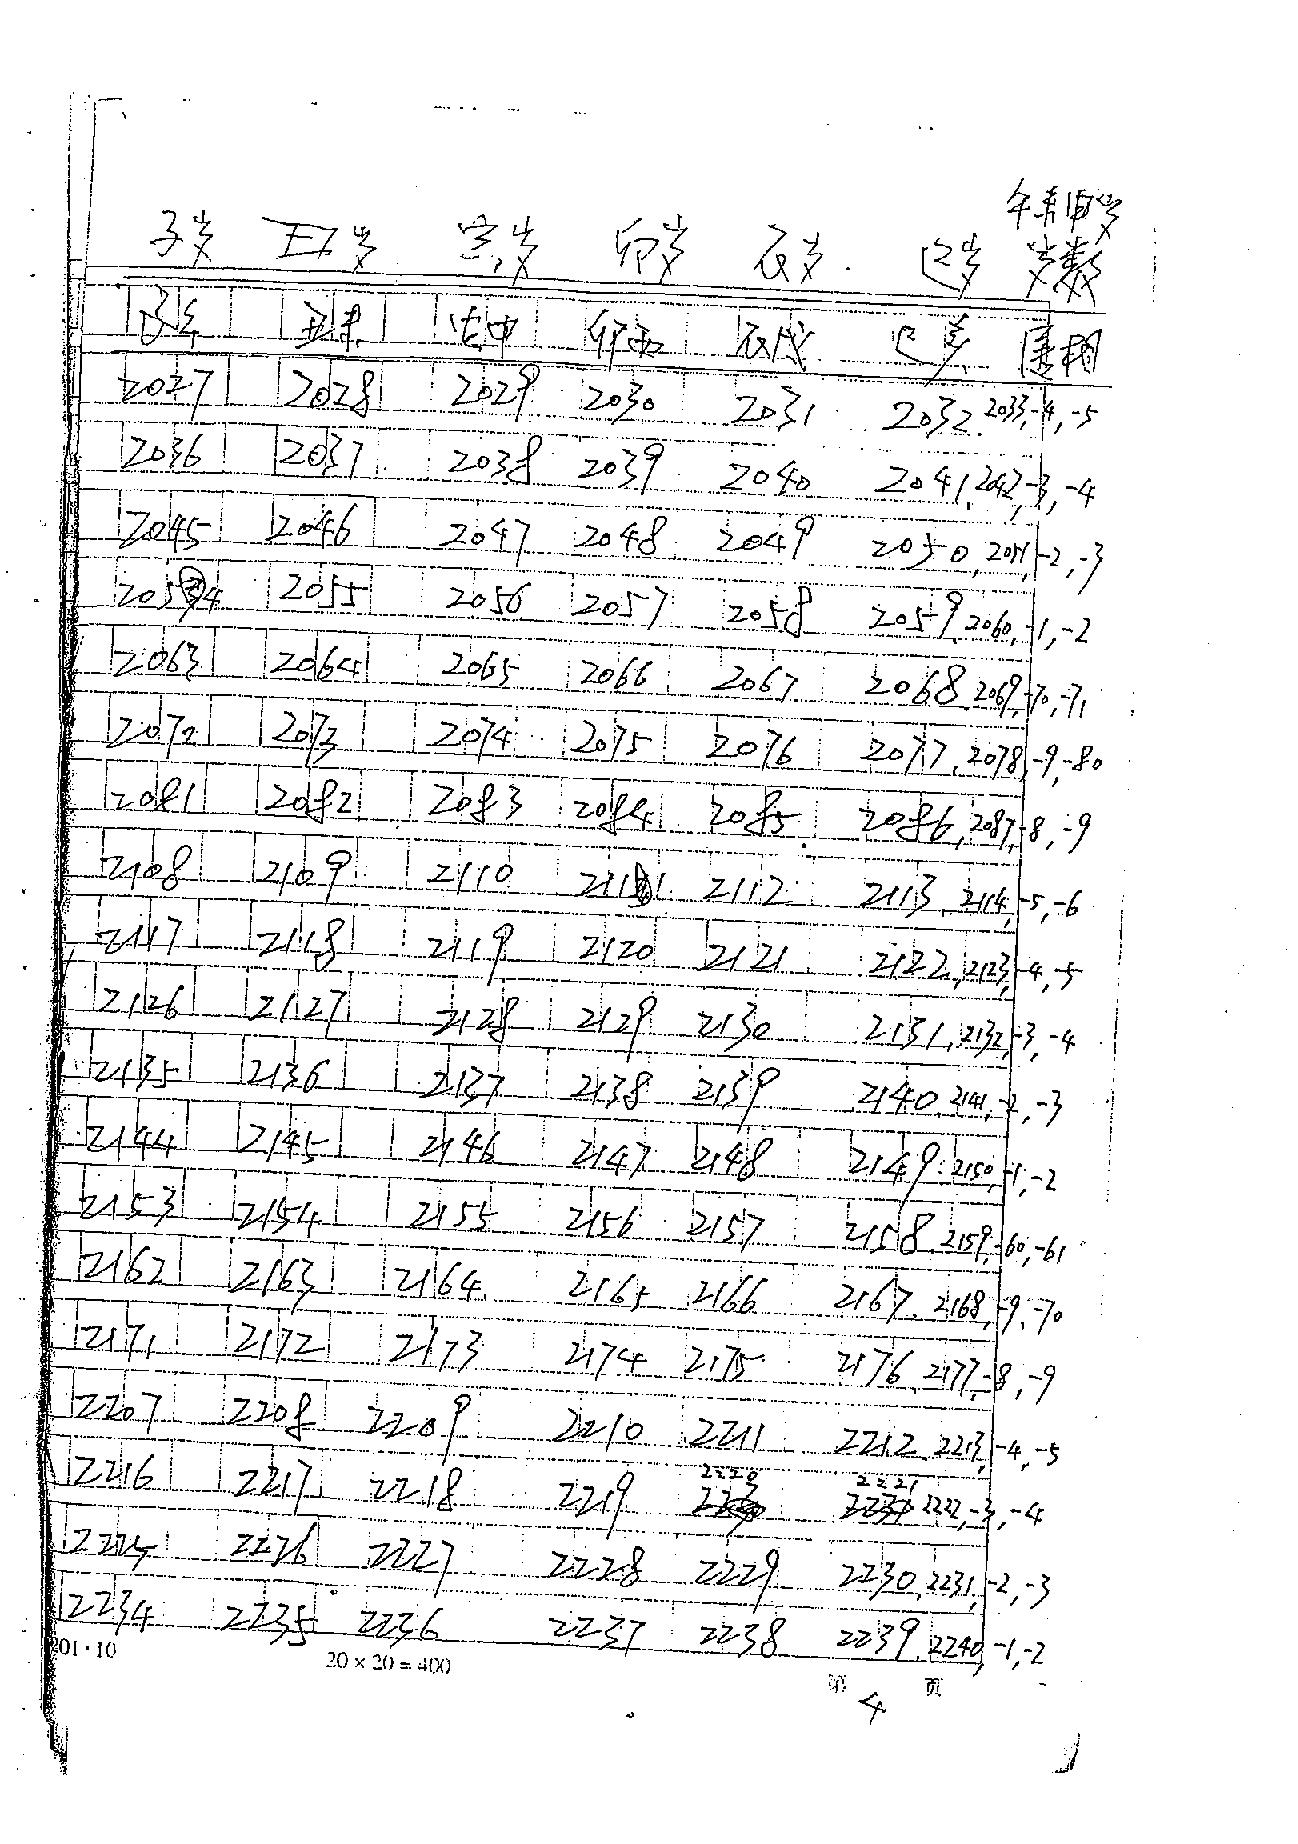 午未申岁
子岁 丑岁 寅岁 卯岁 辰岁 巳岁 岁数
子午 丑未 寅申 卯酉 辰戌 巳亥
2027 2028 2029 2030 2031 2032 2033,-4,-5
2036 2037 2038 2039 2040 2041, 2042,-3,-4
2045 2046 2047 2048 2049 2050, 2051,-2,-3
2054 2055 2056 2057 2058 2059, 2060,-1,-2
2063 2064 2065 2066 2067 2068 2069,-70,-71
2072 2073 2074 2075 2076 2077, 2078,-9,-80
2081 2082 2083 2084 2085 2086, 2087,-8,-9
2108 2109 2110 2111 2112 2113, 2114,-5,-6
2117 2118 2119 2120 2121 2122, 2123,-4,-5
2126 2127 2128 2129 2130 2131, 2132,-3,-4
2135 2136 2137 2138 2139 2140, 2141,-2,-3
2144 2145 2146 2147 2148 2149, 2150,-1,-2
2153 2154 2155 2156 2157 2158, 2159,-60,-61
2162 2163 2164 2165 2166 2167, 2168,-9,-70
2171 2172 2173 2174 2175 2176, 2177,-8,-9
2207 2208 2209 2210 2211 2212, 2213,-4,-5
2216 2217 2218 2219 2220 2221 2222,-3,-4
2225 2226 2227 2228 2229 2230, 2231,-2,-3
2234 2235 2236 2237 2238 2239, 2240,-1,-2
201·10 20×20=400 第 4 页